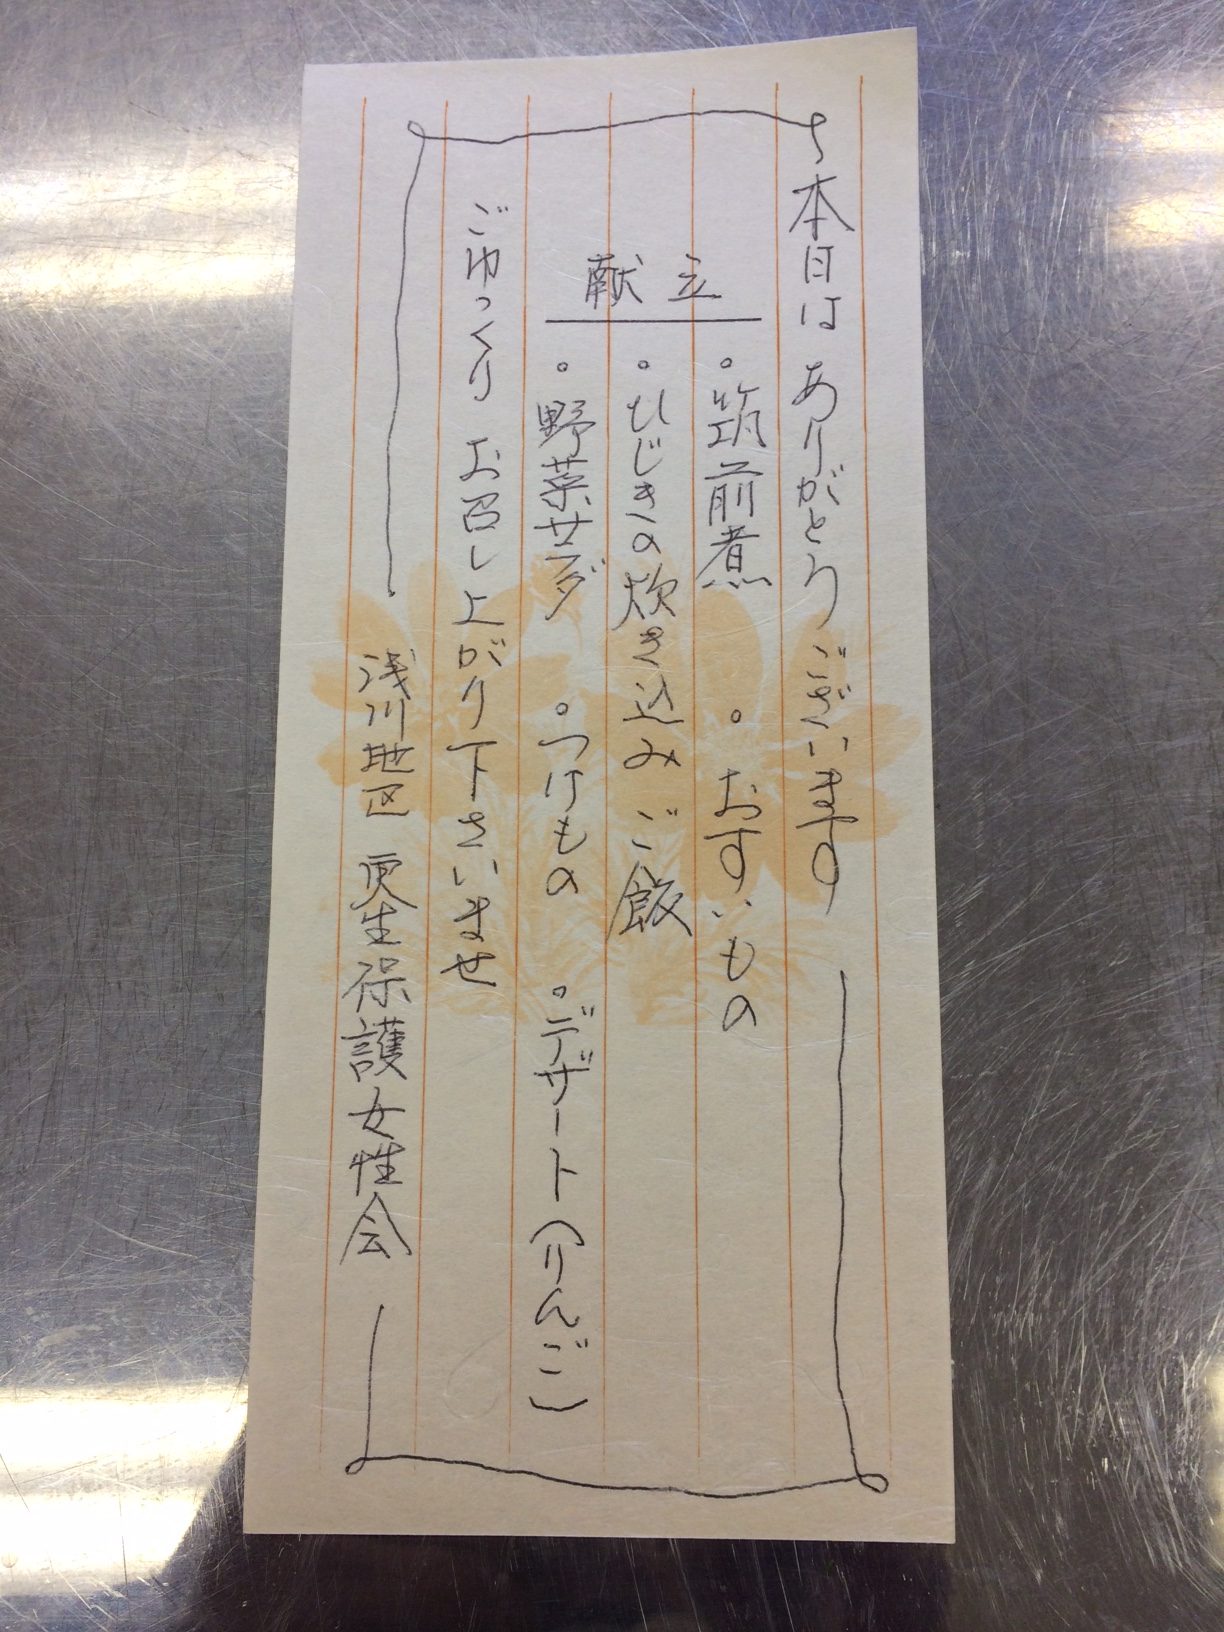 本日は ありがとう ございます
献立
。筑前煮 。おすいもの
。ひじきの炊き込み ご飯
。野菜サラダ 。つけもの 。デザート(りんご)
ごゆっくり お召し上がり下さいませ
浅川地区 更生保護女性会